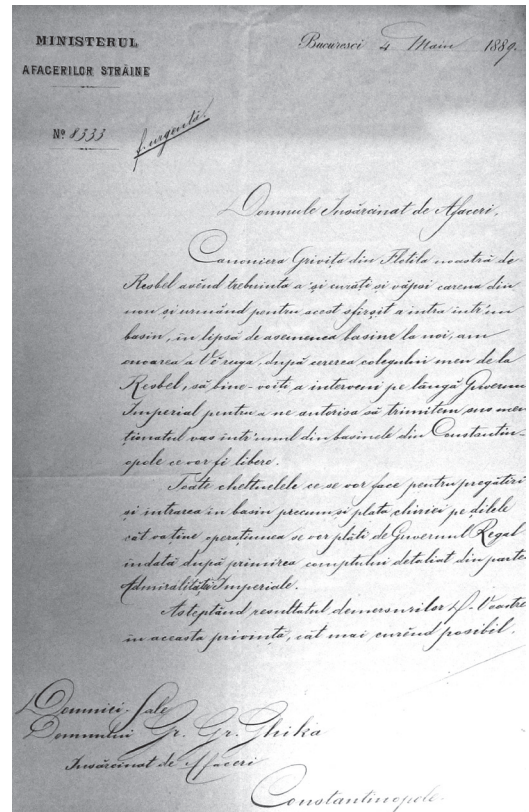 MINISTERUL
AFACERILOR STRĂINE
Bucuresci 4 Maiu 1889.
Nº 8333
f. urgentă.
Domnule Insărcinat de Afaceri,
Canoniera Grivița din Flotila noastră de
Resbel avênd trebuința a'și curăți și văpsi carena din
nou și urmând pentru acest sfîrșit a intra intr'un
basin, in lipsă de asemenea basine la noi, am
onoarea a Vĕ ruga, după cererea colegului meu de la
Resbel, să bine-voiți a interveni pe lângă Guvernu
Imperial pentru a ne autorisa să trimitem sus men
ționatul vas intr'unul din basinele din Constantin-
opole ce vor fi libere.
Toate cheltuelele ce se vor face pentru pregătiri
și intrarea in basin precum și plata chiriei pe dilele
cât va tine operatiunea se vor plăti de Guvernul Regal
indată după primirea comptului detaliat din partea
Admiralități Imperiale.
Asteptând resultatul demersurilor D-Voastre
in aceasta privința, cât mai curênd posibil.
Domniei-Sale
Domnului Gr. Gr. Ghika
Insărcinat de Afaceri
Constantinopole.